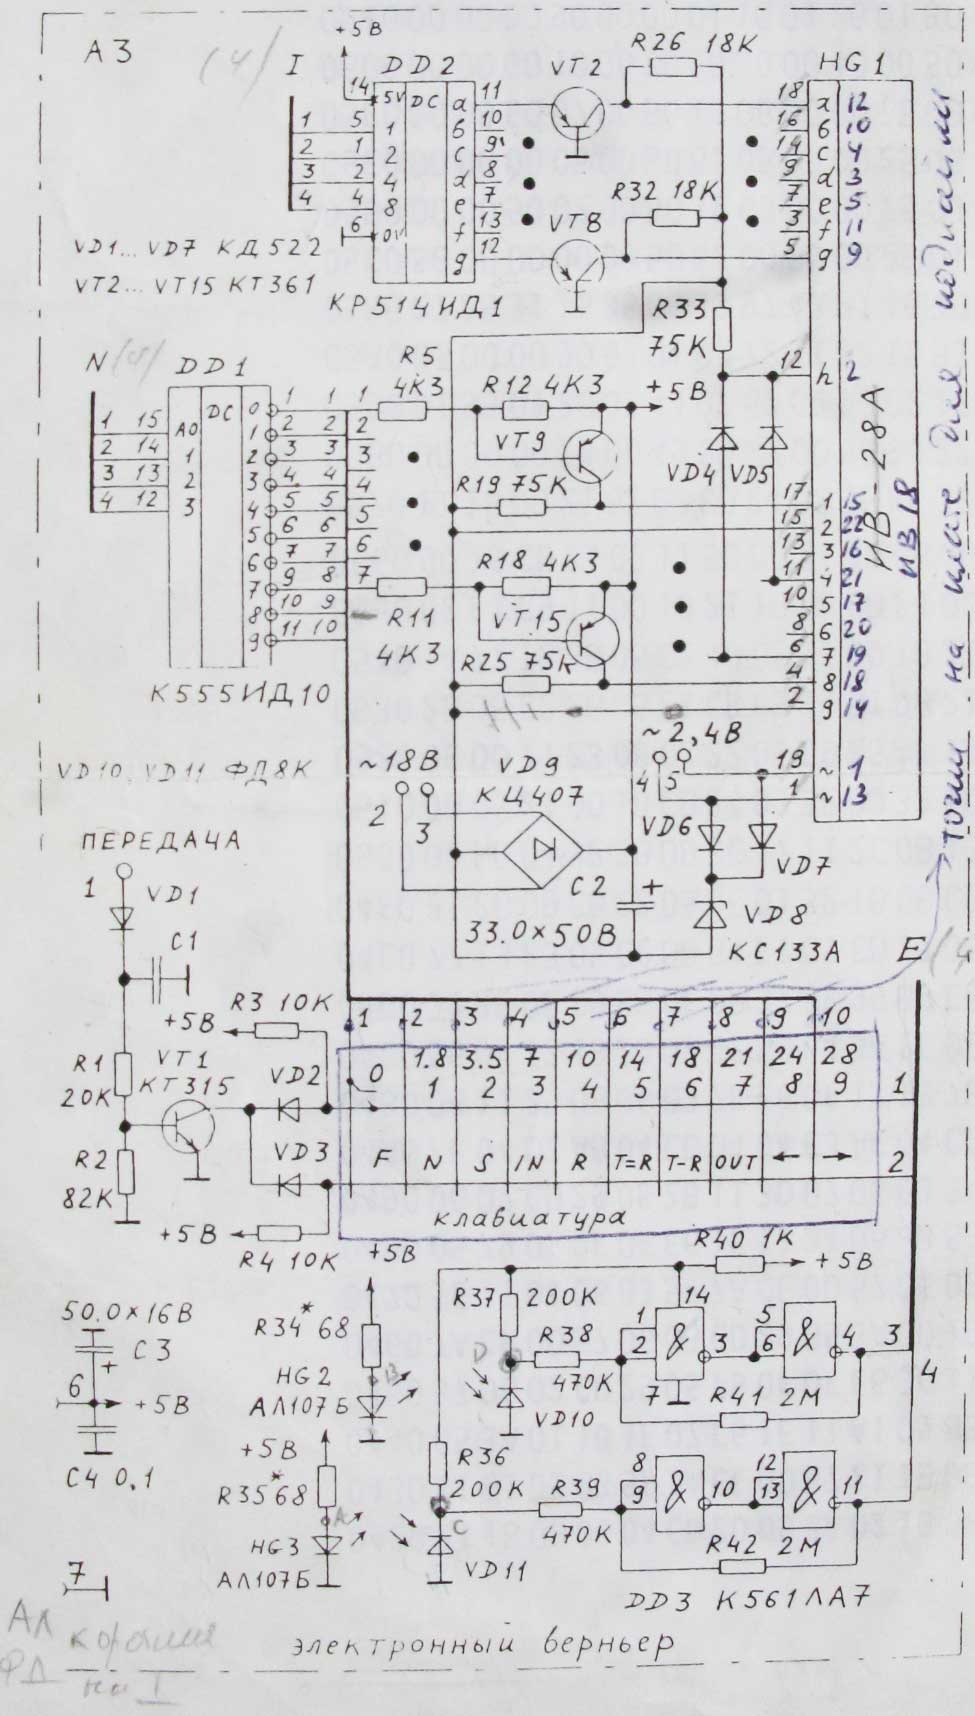 А3
(4)
+5В
I
DD2
VT2
R26 18К
HG1
14 5V DC a 11
18 a 12
1 5 1 б 10
16 б 10
2 1 2 c 9
14 c 4
3 2 4 d 8
9 d 3
4 4 8 e 7
7 e 5
R32 18К
6 0V f 13
3 f 11
VT8
g 12
5 g 9
VD1...VD7 КД522
VT2...VT15 КТ361
КР514ИД1
R33
75К
12 h 2
N
DD1
R5
4К3
R12 4К3
+5В
DC 0 1 1 1
1 15 A0 1 2 2 2
2 14 1 2 3 3 3
3 13 2 3 4 4 4
4 12 3 4 5 5 5
5 6 6 6
6 7 7 7
7 9 8
8 10 9
9 11 10
VT9
VD4 VD5
R19 75К
17 1 15
15 2 22
13 3 16
11 4 21
10 5 17
8 6 20
6 7 19
4 8 18
2 9 14
ИВ-28А
ИВ18
R18 4К3
VT15
R11
4К3
R25 75К
К555ИД10
~2,4В
4 5
19 ~ 1
1 ~ 13
VD10, VD11 ФД8К
~18В
2 3
VD9
КЦ407
VD6
VD7
ПЕРЕДАЧА
1
VD1
C2
+
33.0×50В
VD8
КС133А
E
C1
+5В
R3 10К
1 2 3 4 5 6 7 8 9 10
1.8 3.5 7 10 14 18 21 24 28
0 1 2 3 4 5 6 7 8 9
1
R1
20К
VT1
КТ315
VD2
VD3
R2
82К
F N S IN R T=R T-R OUT ← →
2
клавиатура
+5В
R4 10К
+5В
R40 1К
+5В
50.0×16В
C3
+
6
+5В
C4 0,1
R34* 68
HG2
АЛ107Б
B
R37 200К
D
R38
470К
VD10
14
1
2
&
3
7
5
6
&
4
3
4
R41 2М
+5В
R35* 68
A
HG3
АЛ107Б
R36
200К
C
R39
470К
VD11
8
9
&
10
12
13
&
11
R42 2М
DD3 К561ЛА7
7
АЛ
ФД
на I
электронный верньер
точки на цшкале для